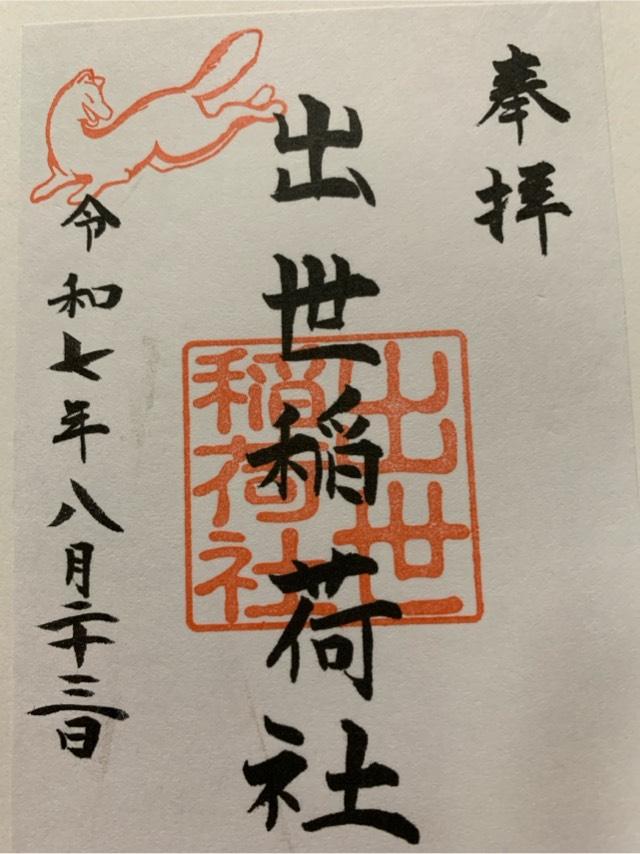 奉拝
出世稲荷社
出世
稲荷社
令和七年八月二十三日